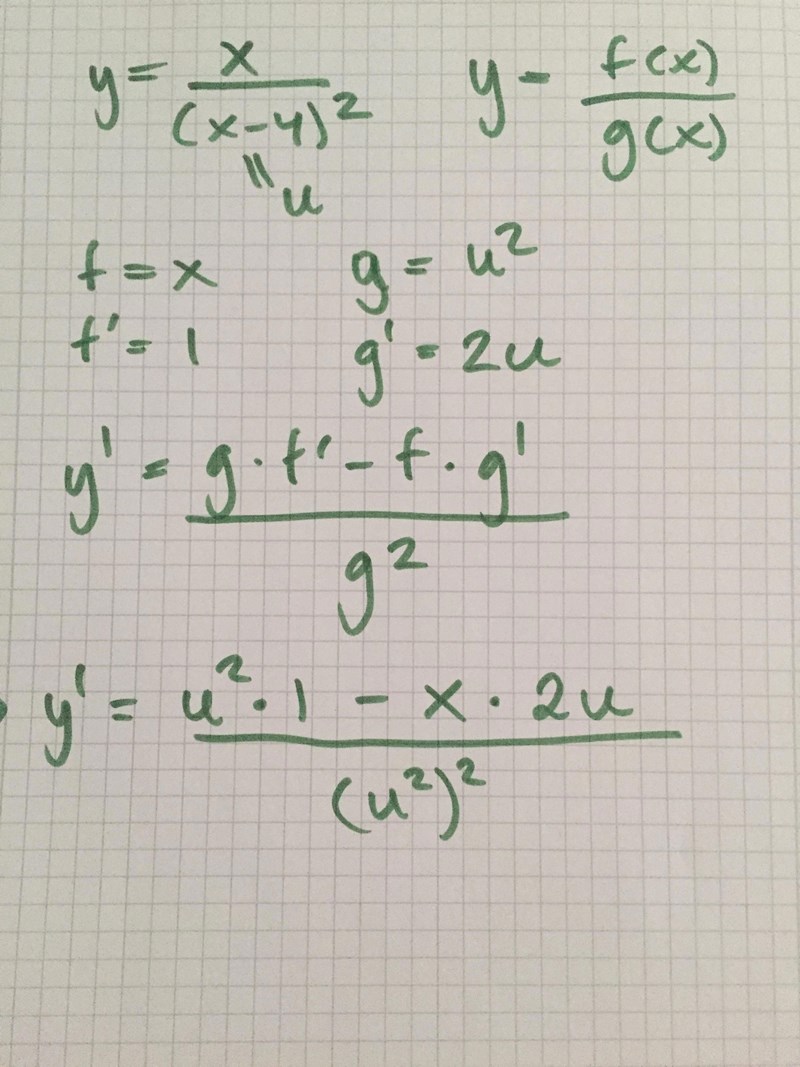 y = x / (x-4)² y = f(x) / g(x)
|| u
f = x g = u²
f' = 1 g' = 2u
y' = g · f' - f · g' / g²
y' = u² · 1 - x · 2u / (u²)²